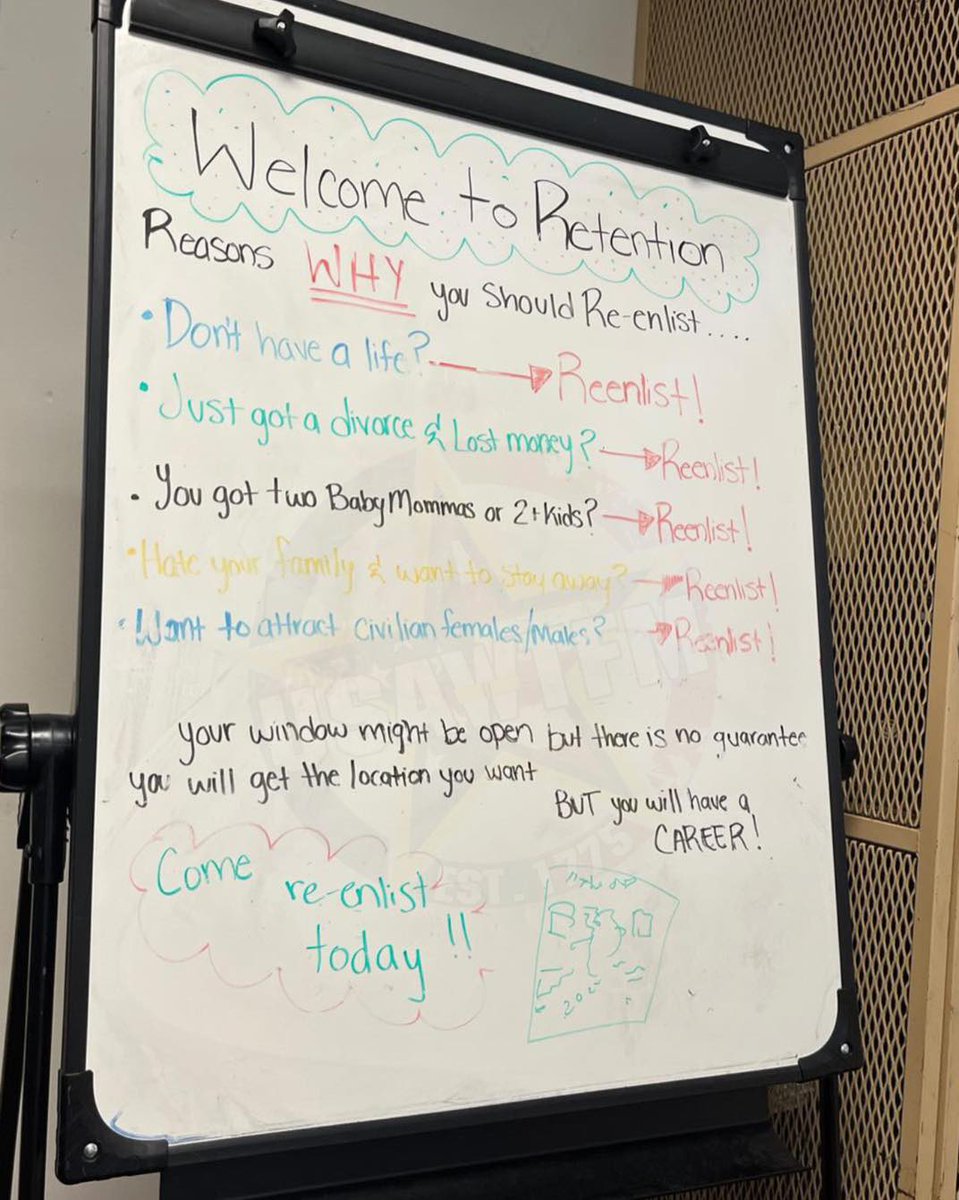 Welcome to Retention
Reasons WHY you Should Re-enlist....
• Don't have a life? Reenlist!
• Just got a divorce & Lost money? Reenlist!
• You got two Baby Mommas or 2+ Kids? Reenlist!
• Hate your family & want to stay away? Reenlist!
• Want to attract civilian females/Males? Reenlist!
your window might be open but there is no guarantee
you will get the location you want
BUT you will have a
CAREER!
Come re-enlist
today !!
USAWTFM
EST. 1775